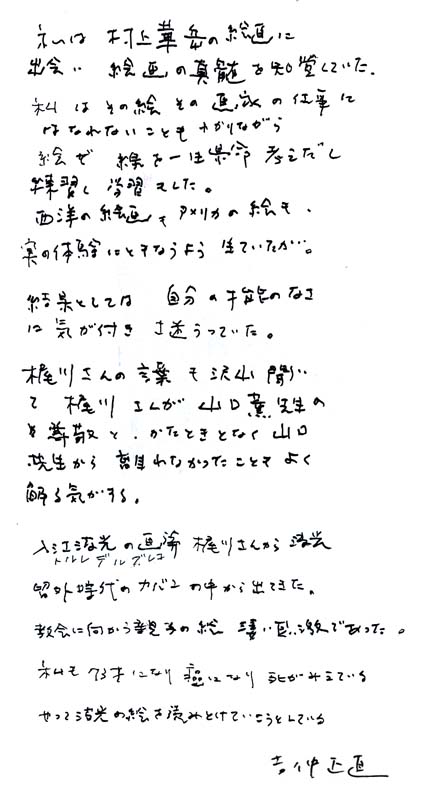 私は 村上華岳の絵画に
出会い 絵画の真髄を知覚していた.
私はその絵 その画家の仕事に
はなれないこともわかりながら
絵ぜ 線を一生懸命 考えだし
練習し 学習した。
西洋の絵画もアメリカの絵も、
実の体験にともなうよう 生ていたが。
結果としては 自分の才能のなさ
に気が付き さ迷うっていた。
梶川さんの言葉も沢山聞い
て 梶川さんが山口薫先生の
を尊敬と、かたときとなく山口
先生から離れなかったこともよく
解る気がする。
入江波光の画論 梶川さんから 波光
トルレ デル グレコ
留外時代のカバンの中から出てきた。
教会に向かう親子の絵 凄い感激であった。
私も73才になり 癌になり 死がみえている
やって波光の絵を読みとけていこうとしている
吉仲正直